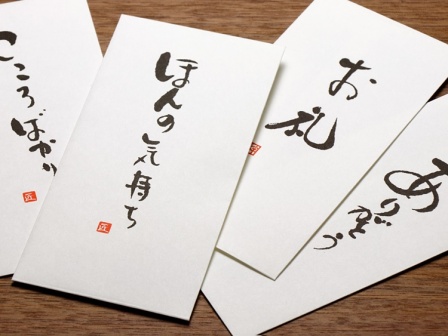 こころばかり
ほんの気持ち
匠
お礼
ありがとう
匠